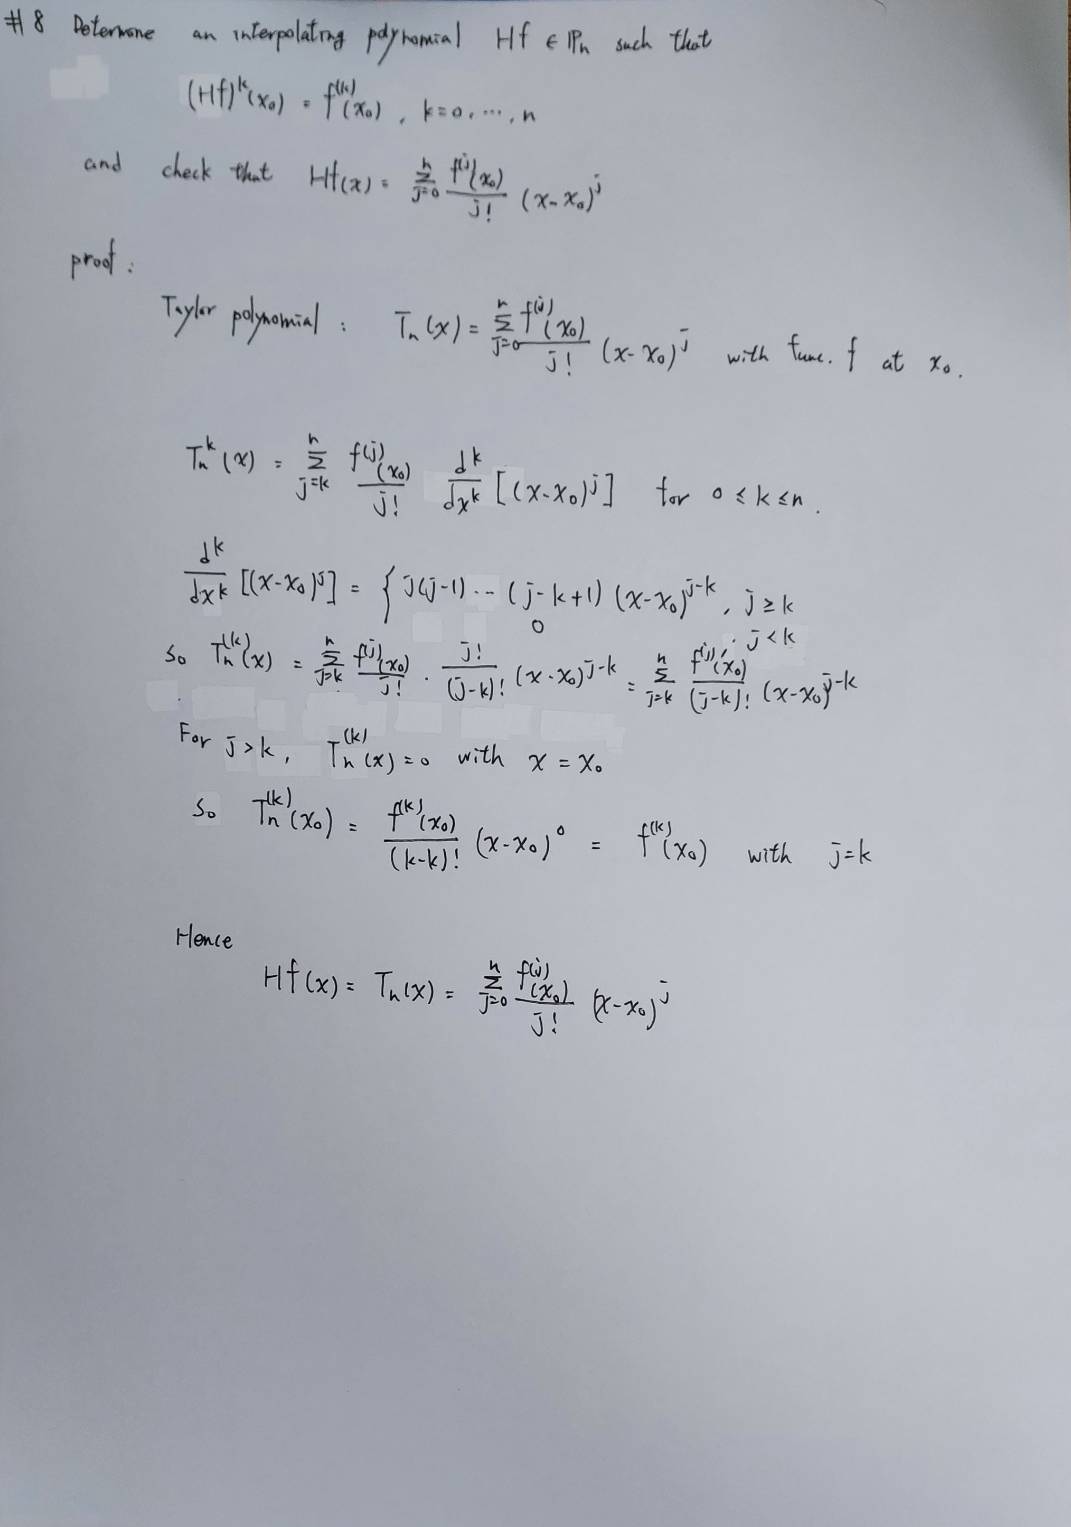 #8 Determone an interpolating polynomial Hf ∈ ℙn such that
(Hf)^k(x₀) = f^(k)(x₀), k=0,⋯,n
and check that Hf(x) = Σ_{j=0}^{n} f^(j)(x₀)/j! (x-x₀)^j
proof:
Taylor polynomial: Tn(x) = Σ_{j=0}^{n} f^(j)(x₀)/j! (x-x₀)^j with func. f at x₀.
Tn^k(x) = Σ_{j=k}^{n} f^(j)(x₀)/j! d^k/dx^k [(x-x₀)^j] for 0≤k≤n.
d^k/dx^k [(x-x₀)^j] = { j(j-1)⋯(j-k+1)(x-x₀)^{j-k}, j≥k
0, j<k
So Tn^(k)(x) = Σ_{j=k}^{n} f^(j)(x₀)/j! · j!/(j-k)! (x-x₀)^{j-k} = Σ_{j=k}^{n} f^(j)(x₀)/(j-k)! (x-x₀)^{j-k}
For j>k, Tn^(k)(x)=0 with x=x₀
So Tn^(k)(x₀) = f^(k)(x₀)/(k-k)! (x-x₀)^0 = f^(k)(x₀) with j=k
Hence
Hf(x) = Tn(x) = Σ_{j=0}^{n} f^(j)(x₀)/j! (x-x₀)^j